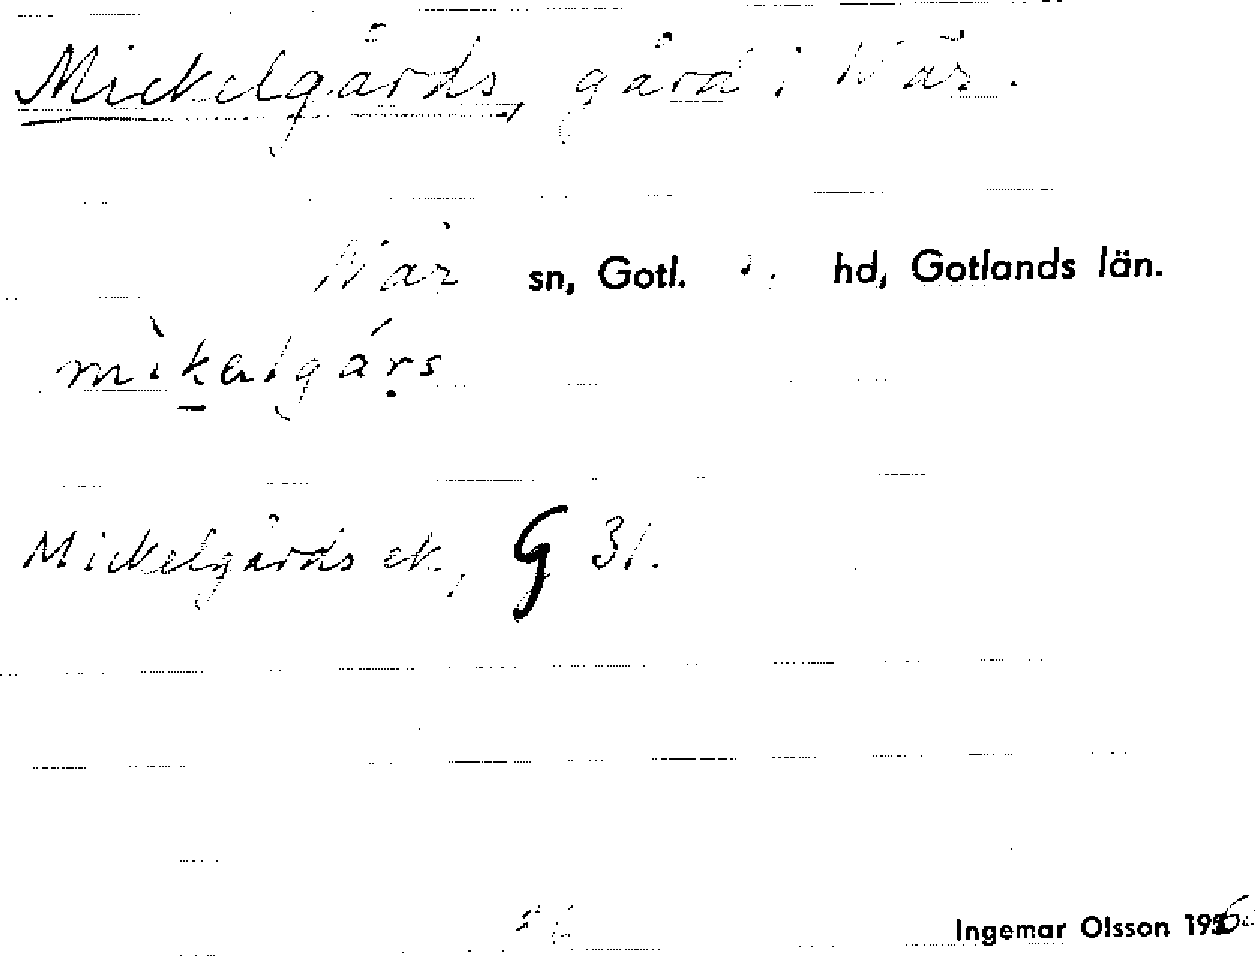 Mickelgårds, gård i När.
När sn, Gotl. s. hd, Gotlands län.
mìkalgárs
Mickelgårds ek, G 31.
Ingemar Olsson 196